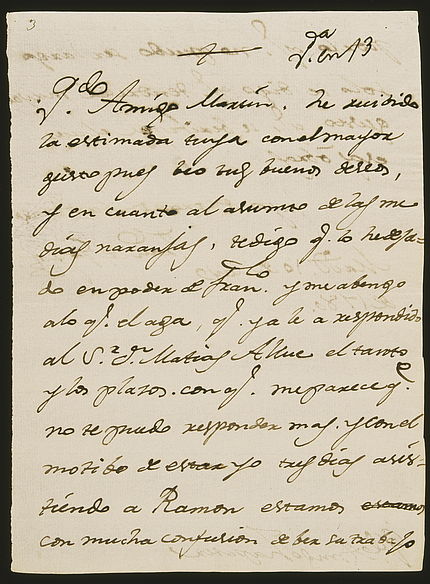 3
+
Z.ª En 13
Q.do Amigo Martin. he recibido
la estimada tuya con el mayor
gusto pues beo tus buenos deseos,
y en cuanto al asumto de las me
dias naranjas, te digo q.e lo he deja=
do en poder de Fran.co y me abengo
a lo q.e el aga, q.e ya le a respondido
al S.r D.n Matias Allue el tanto
y los plazos. con q.e me parece q.e
no te puedo responder mas. y con el
motibo de estar yo tres dias asis=
tiendo a Ramon estamos estamos
con mucha confusion de ber su trabajo